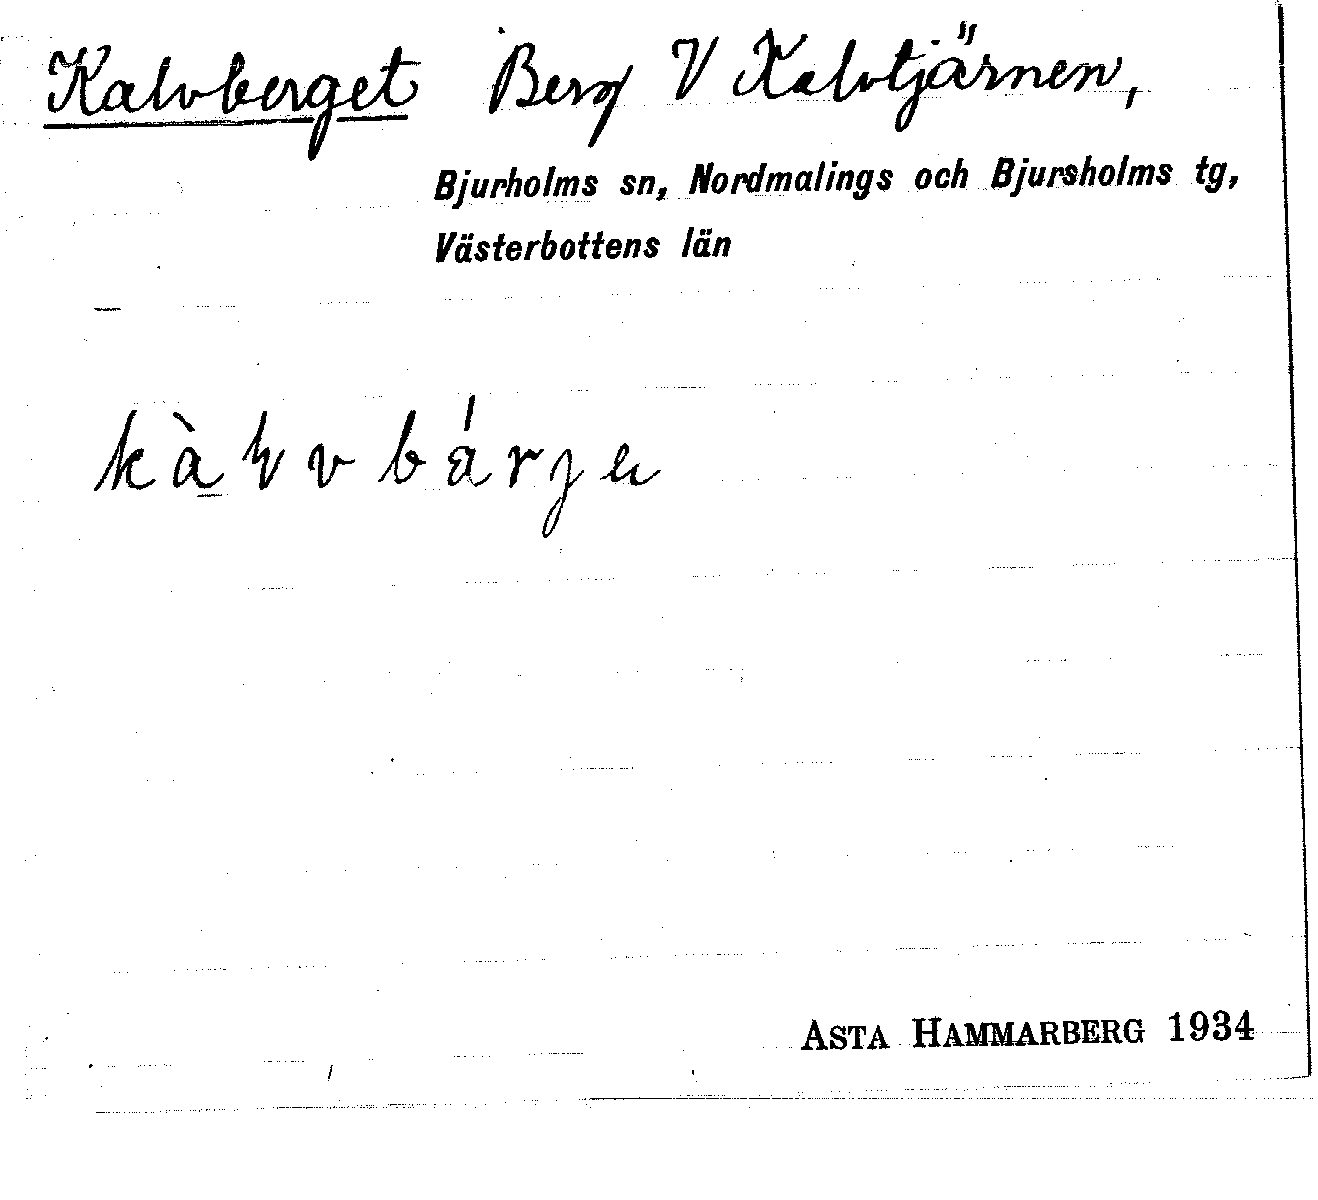 Kalvberget Berg V Kalvtjärnen,
Bjurholms sn, Nordmalings och Bjursholms tg,
Västerbottens län
Asta Hammarberg 1934